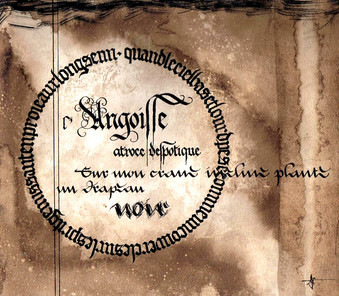 quandlecielbasetlourdpesecommeuncouverclesurlespritgemissantenproieauxlongsenn·
l'Angoisse
atroce despotique
Sur mon crane incline plante
un drapeau
noir